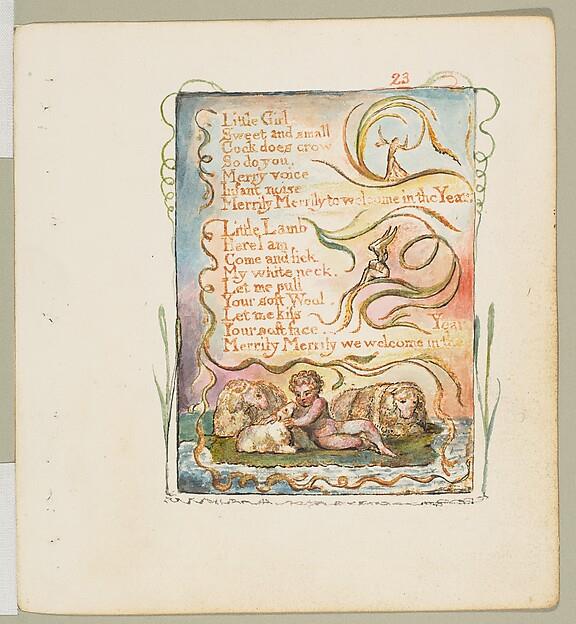 23
Little Girl
Sweet and small
Cock does crow
So do you.
Merry voice
Infant noise
Merrily Merrily to welcome in the Year
Little Lamb
Here I am
Come and lick
My white neck.
Let me pull
Your soft Wool.
Let me kiss
Your soft face
Year
Merrily Merrily we welcome in the